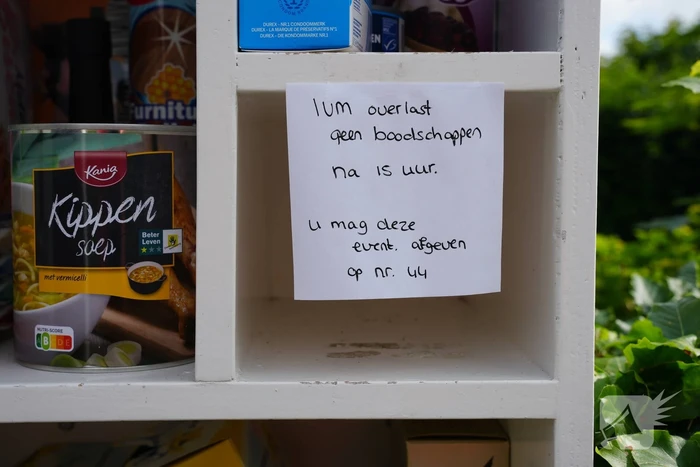 DUREX - NR.1 CONDOOMMERK
DUREX - LA MARQUE DE PRÉSERVATIFS N°1
DUREX - DE KONDOMMARKE NR.1
urnitu
Kania
Kippen
soep
Beter
Leven
met vermicelli
NUTRI-SCORE
A B C D E
IVM overlast
geen boodschappen
na 15 uur.
u mag deze
event. afgeven
op nr. 44